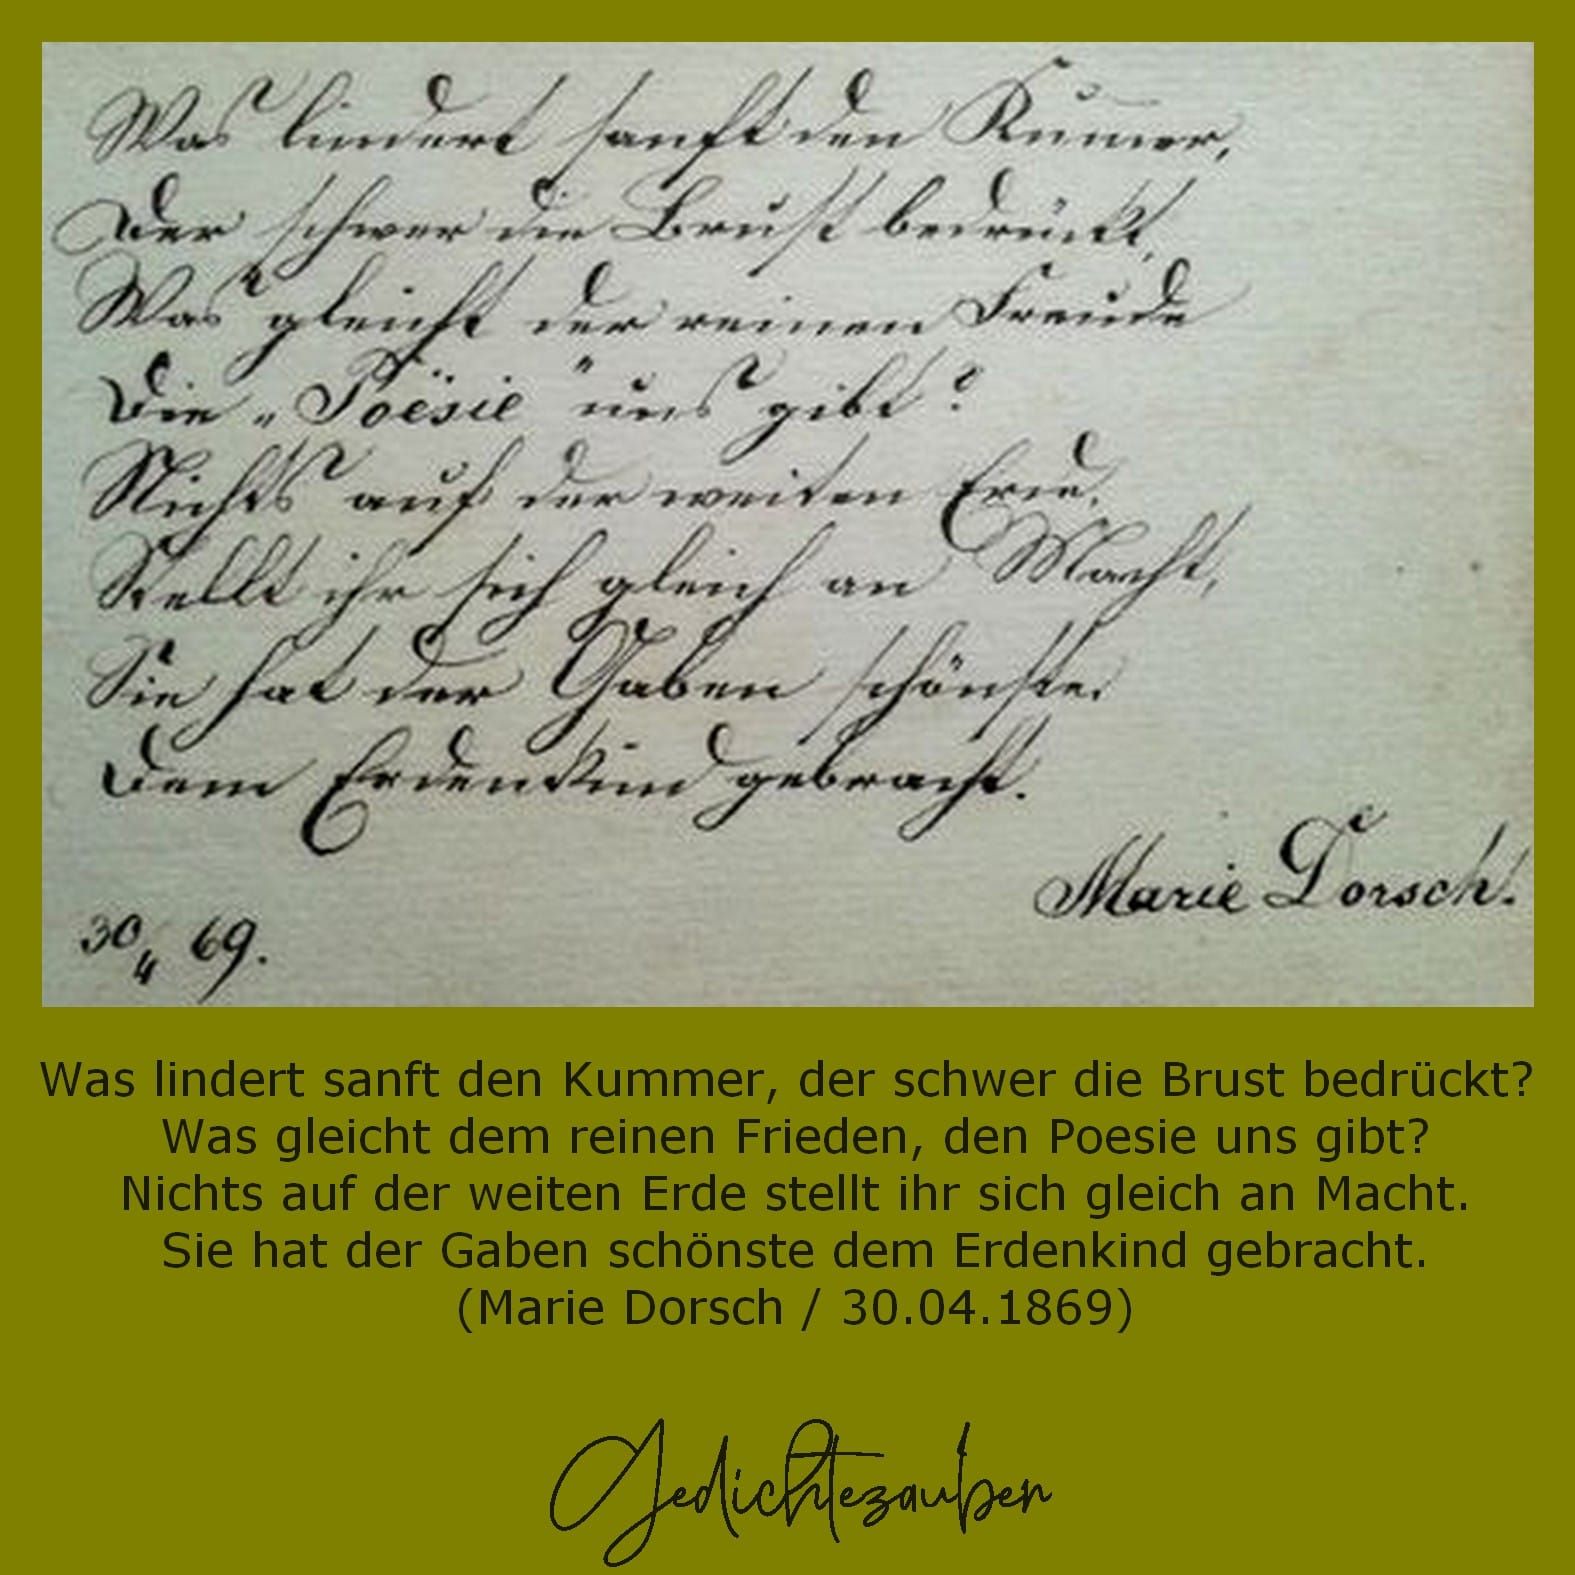 Was lindert sanft den Kum̅er,
Der schwer die Brust bedrückt,
Was gleicht der reinen Freude
Die „Poësie" uns gibt?
Nichts auf der weiten Erde,
Stellt ihr sich gleich an Macht,
Sie hat der Gaben schönste
Dem Erdenkind gebracht.
Marie Dorsch.
30/4 69.
Was lindert sanft den Kummer, der schwer die Brust bedrückt?
Was gleicht dem reinen Frieden, den Poesie uns gibt?
Nichts auf der weiten Erde stellt ihr sich gleich an Macht.
Sie hat der Gaben schönste dem Erdenkind gebracht.
(Marie Dorsch / 30.04.1869)
Gedichtezauber